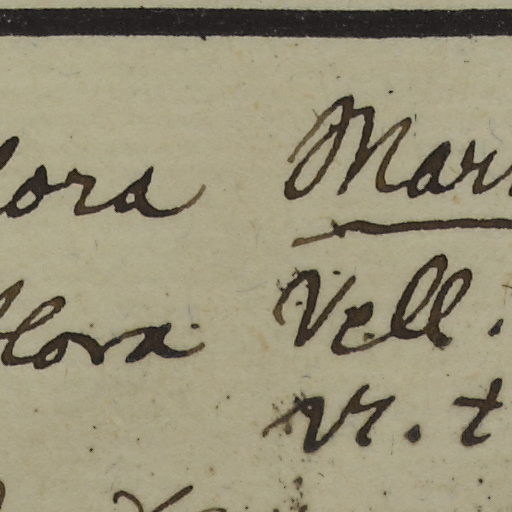 lora Mar
flora Vell.
Vr. t